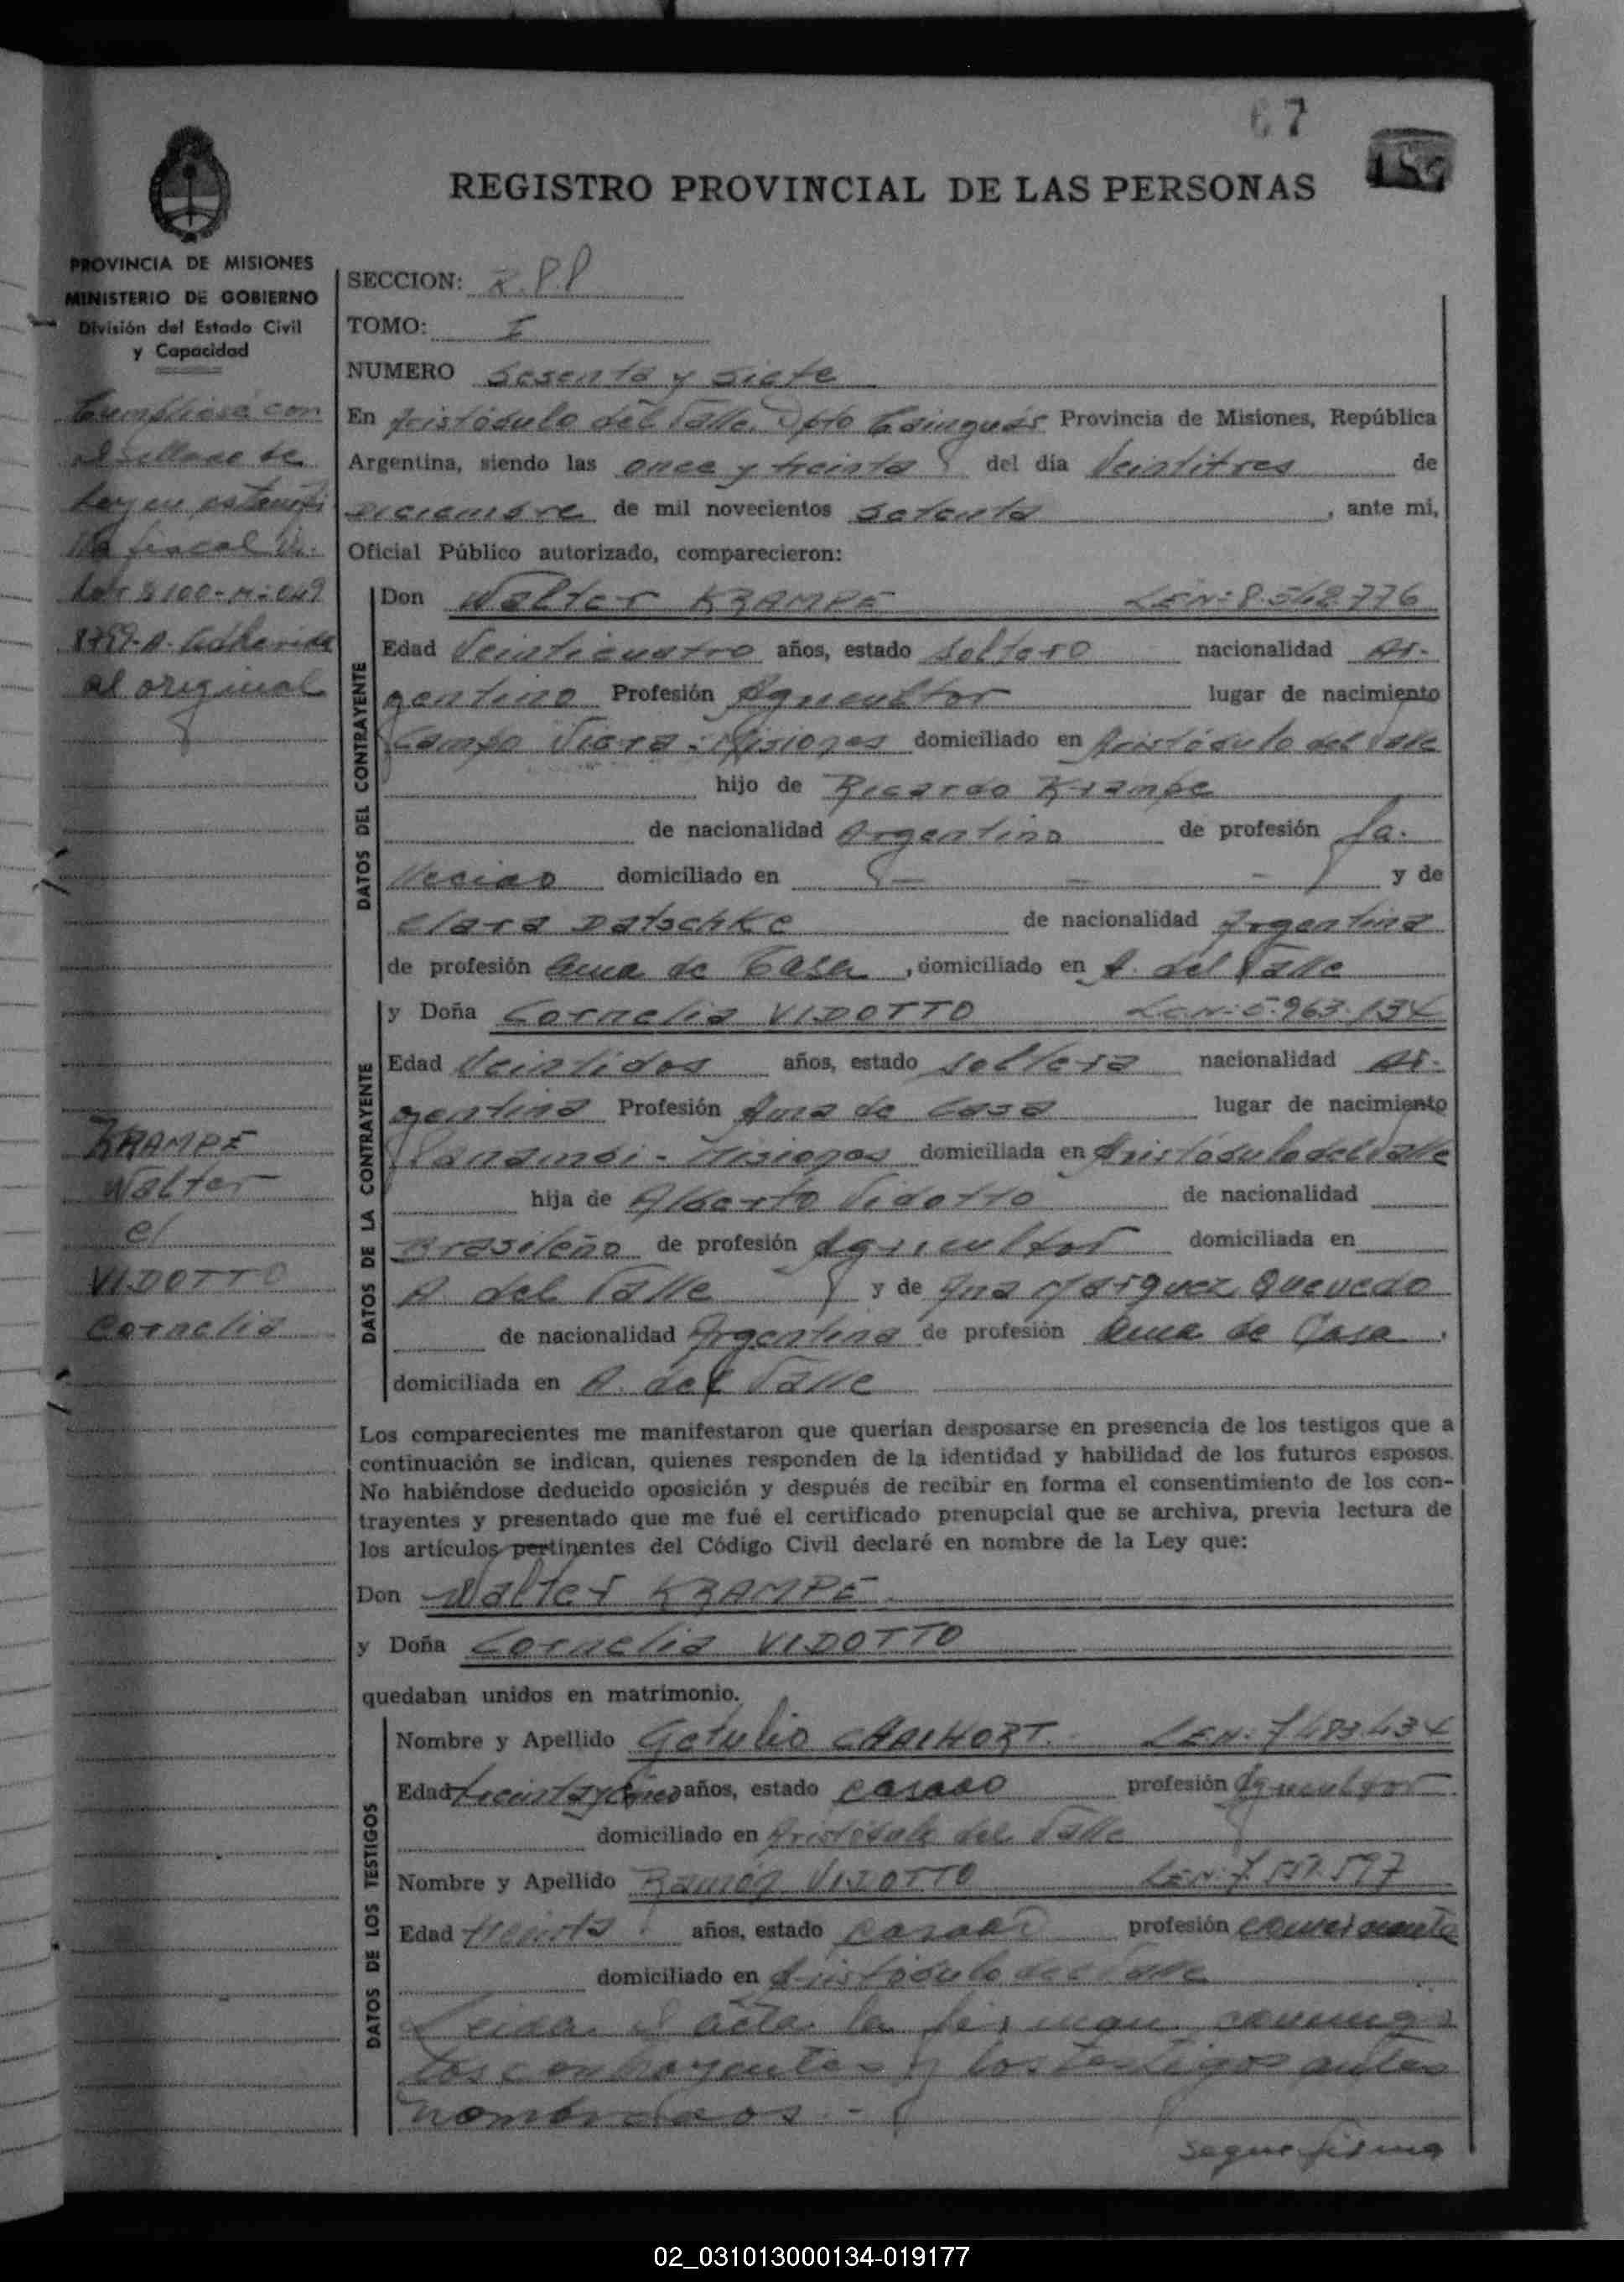 67
REGISTRO PROVINCIAL DE LAS PERSONAS
PROVINCIA DE MISIONES
MINISTERIO DE GOBIERNO
División del Estado Civil
y Capacidad
con
de
fiscal
al original
KRAMPE
Walter
c/
VIDOTTO
Cornelia
SECCION: R.P.P
TOMO: I
NUMERO Sesenta y siete
En Aristóbulo del Valle. Dpto Cainguás Provincia de Misiones, República
Argentina, siendo las once y treinta del día Veintitres de
Diciembre de mil novecientos Setenta, ante mi,
Oficial Público autorizado, comparecieron:
DATOS DEL CONTRAYENTE
Don Walter KRAMPE L.E.N: 8.542.776
Edad Veinticuatro años, estado Soltero nacionalidad Ar-
gentino Profesión Agricultor lugar de nacimiento
Campo Viera - Misiones domiciliado en Aristóbulo del Valle
hijo de Ricardo Krampe
de nacionalidad Argentino de profesión fa-
llecido domiciliado en - - - y de
Clara Datschke de nacionalidad Argentina
de profesión Ama de Casa, domiciliado en A. del Valle
DATOS DE LA CONTRAYENTE
y Doña Cornelia VIDOTTO L.C.N: 5.963.134
Edad Veintidos años, estado soltera nacionalidad Ar-
gentina Profesión Ama de Casa lugar de nacimiento
Panambi - Misiones domiciliada en Aristóbulo del Valle
hija de Alberto Vidotto de nacionalidad
Brasileño de profesión Agricultor domiciliada en
A. del Valle y de Ana Marquez Quevedo
de nacionalidad Argentina de profesión Ama de Casa.
domiciliada en A. del Valle
Los comparecientes me manifestaron que querían desposarse en presencia de los testigos que a
continuación se indican, quienes responden de la identidad y habilidad de los futuros esposos.
No habiéndose deducido oposición y después de recibir en forma el consentimiento de los con-
trayentes y presentado que me fué el certificado prenupcial que se archiva, previa lectura de
los artículos pertinentes del Código Civil declaré en nombre de la Ley que:
Don Walter KRAMPE
y Doña Cornelia VIDOTTO
quedaban unidos en matrimonio.
DATOS DE LOS TESTIGOS
Nombre y Apellido Getulio L.E.N: 7.483.434
Edad treinta y cinco años, estado casado profesión Agricultor
domiciliado en Aristóbulo del Valle
Nombre y Apellido Ramón VIDOTTO L.E.N:
Edad treinta años, estado casado profesión comerciante
domiciliado en Aristóbulo del Valle
Leida el acta la firman conmigo
los contrayentes y los testigos antes
nombrados.-
Segue firma
02_031013000134-019177